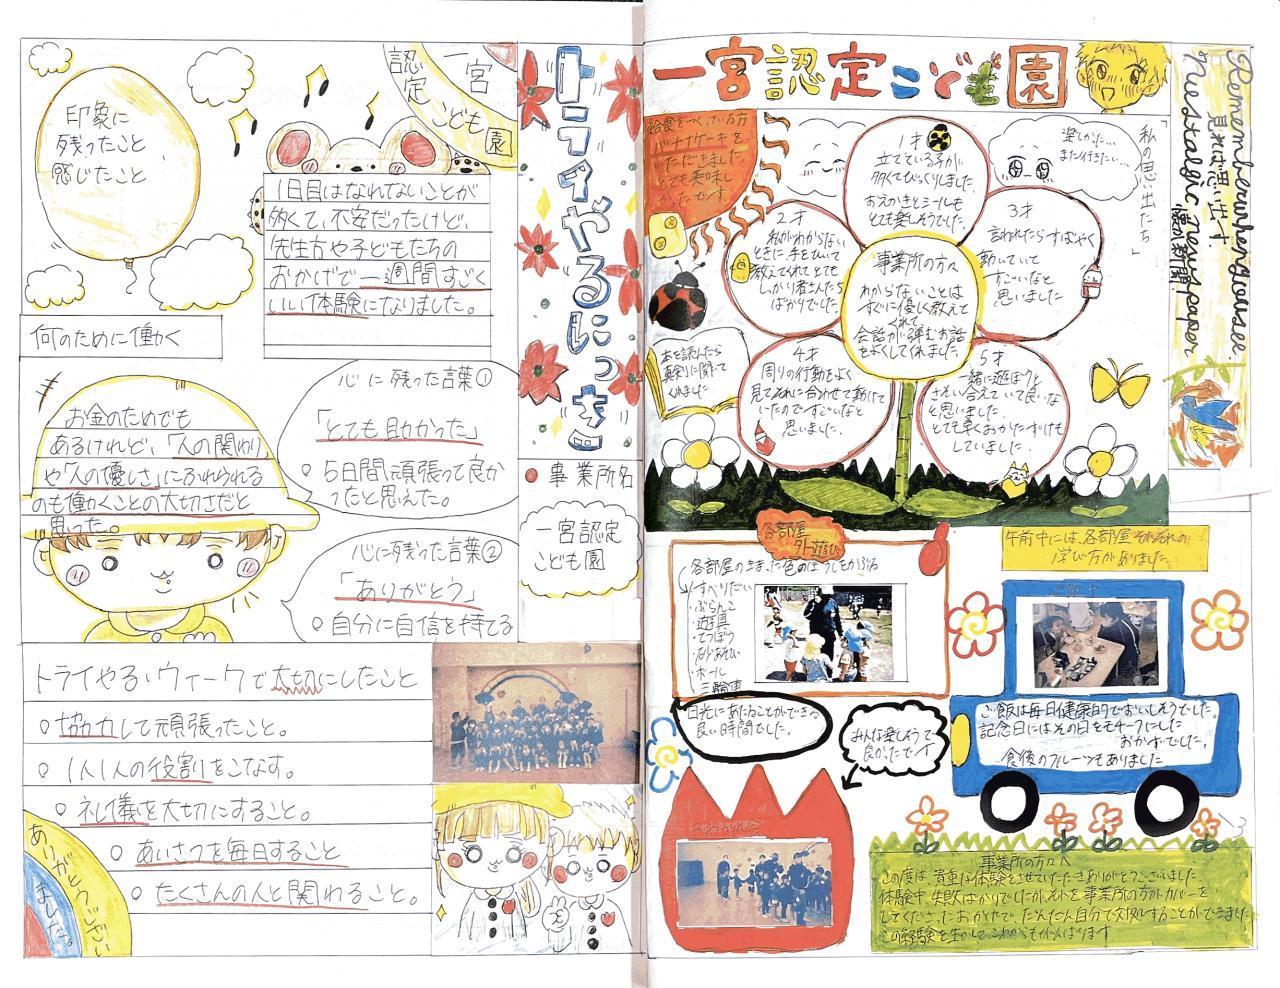 トライやるにっき
事業所名
一宮認定
こども園
一宮
認定
こども園
印象に
残ったこと
感じたこと
1日目はなれてないことが
多くて、不安だったけど、
先生方や子どもたちの
おかげで一週間すごく
いい体験になりました。
何のために働く
お金のためでも
あるけれど、「人の関わり
や「人の優しさ」にふれられる
のも働くことの大切さだと
思った。
心に残った言葉①
「とても助かった」
5日間頑張って良か
ったと思えた。
心に残った言葉②
「ありがとう」
自分に自信を持てる
トライやる・ウィークで大切にしたこと
協力して頑張ったこと。
1人1人の役割をこなす。
礼儀を大切にすること。
あいさつを毎日すること
たくさんの人と関わること。
ありがとうござい
ました。
Remember when you see
見れば思い出す
Nostalgic newspaper
一宮認定こども園
「私の思い出たち」
楽しかった…
また行きたい…
給食をつくっている方
バナナケーキを
いただきました。
とても美味し
かったです
1才
立てている子が
多くてびっくりしました。
おえかきとシールも
とても楽しそうでした。
2才
私がわからない
ときに、手をひいて
教えてくれてとても
しっかり者さんたち
ばかりでした。
3才
言われたらすばやく
動いていて
すごいなと
思いました
事業所の方々
わからないことは
すぐに優しく教えて
くれて、
会話が弾むお話
をよくしてくれました。
本を読んだら
真剣に聞いて
くれました
4才
周りの行動をよく
見てそれに合わせて動けて
いたのですごいなと
思いました。
5才
一緒に遊ぼうと
さそい合えていて良いな
と思いました。
とても早くおかたずけも
していました。
各部屋
外遊び
各部屋のきまった色のぼうしをかぶる
すべりだい
・ぶらんこ
・遊具
・てつぼう
・砂あそび
・ボール
・三輪車
日光にあたることができる
良い時間でした。
みんな楽しそうで
良かったです
午前中には、各部屋それぞれの
学び方がありました。
ご飯は毎日健康的でおいしそうでした。
記念日にはその日をモチーフにした
おかずでした。
食後のフルーツもありました
おわかれ会
事業所の方々へ
この度は、貴重な体験をさせていただきありがとうございました。
体験中、失敗ばかりでしたが、それを事業所の方がカバーを
してくださったおかげで、だんだん自分で対処することができました
この経験を生かしてこれからもがんばります